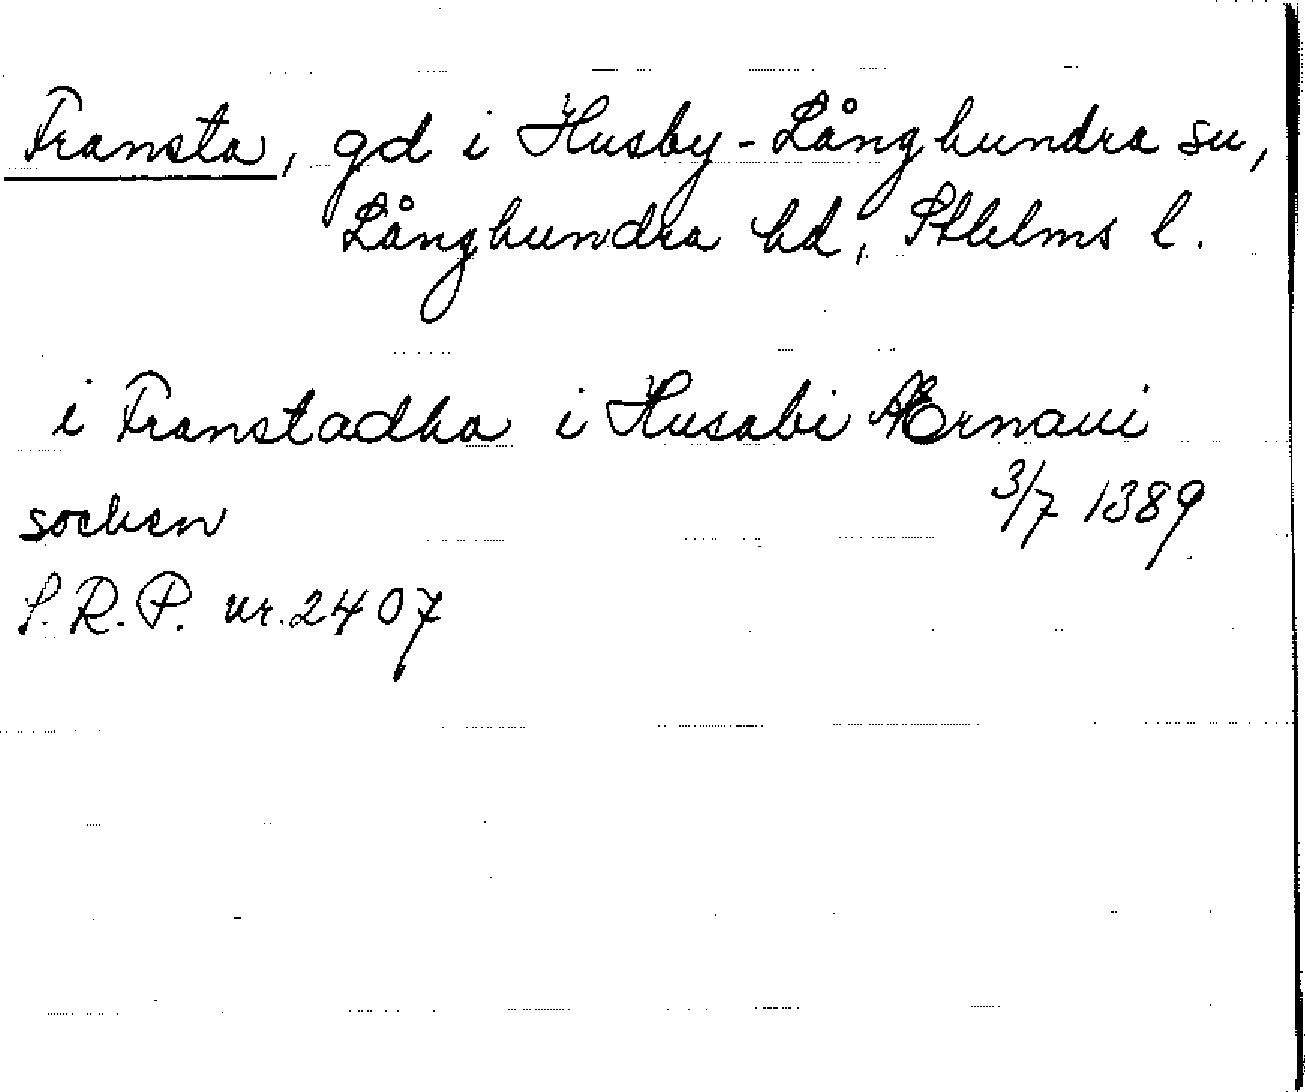 Transta, gd i Husby-Långhundra sn,
Långhundra hd, Sthlms l.
i Transtadha i Husabi Ærnaui
socken 3/7 1389
S.R.P. nr. 2407